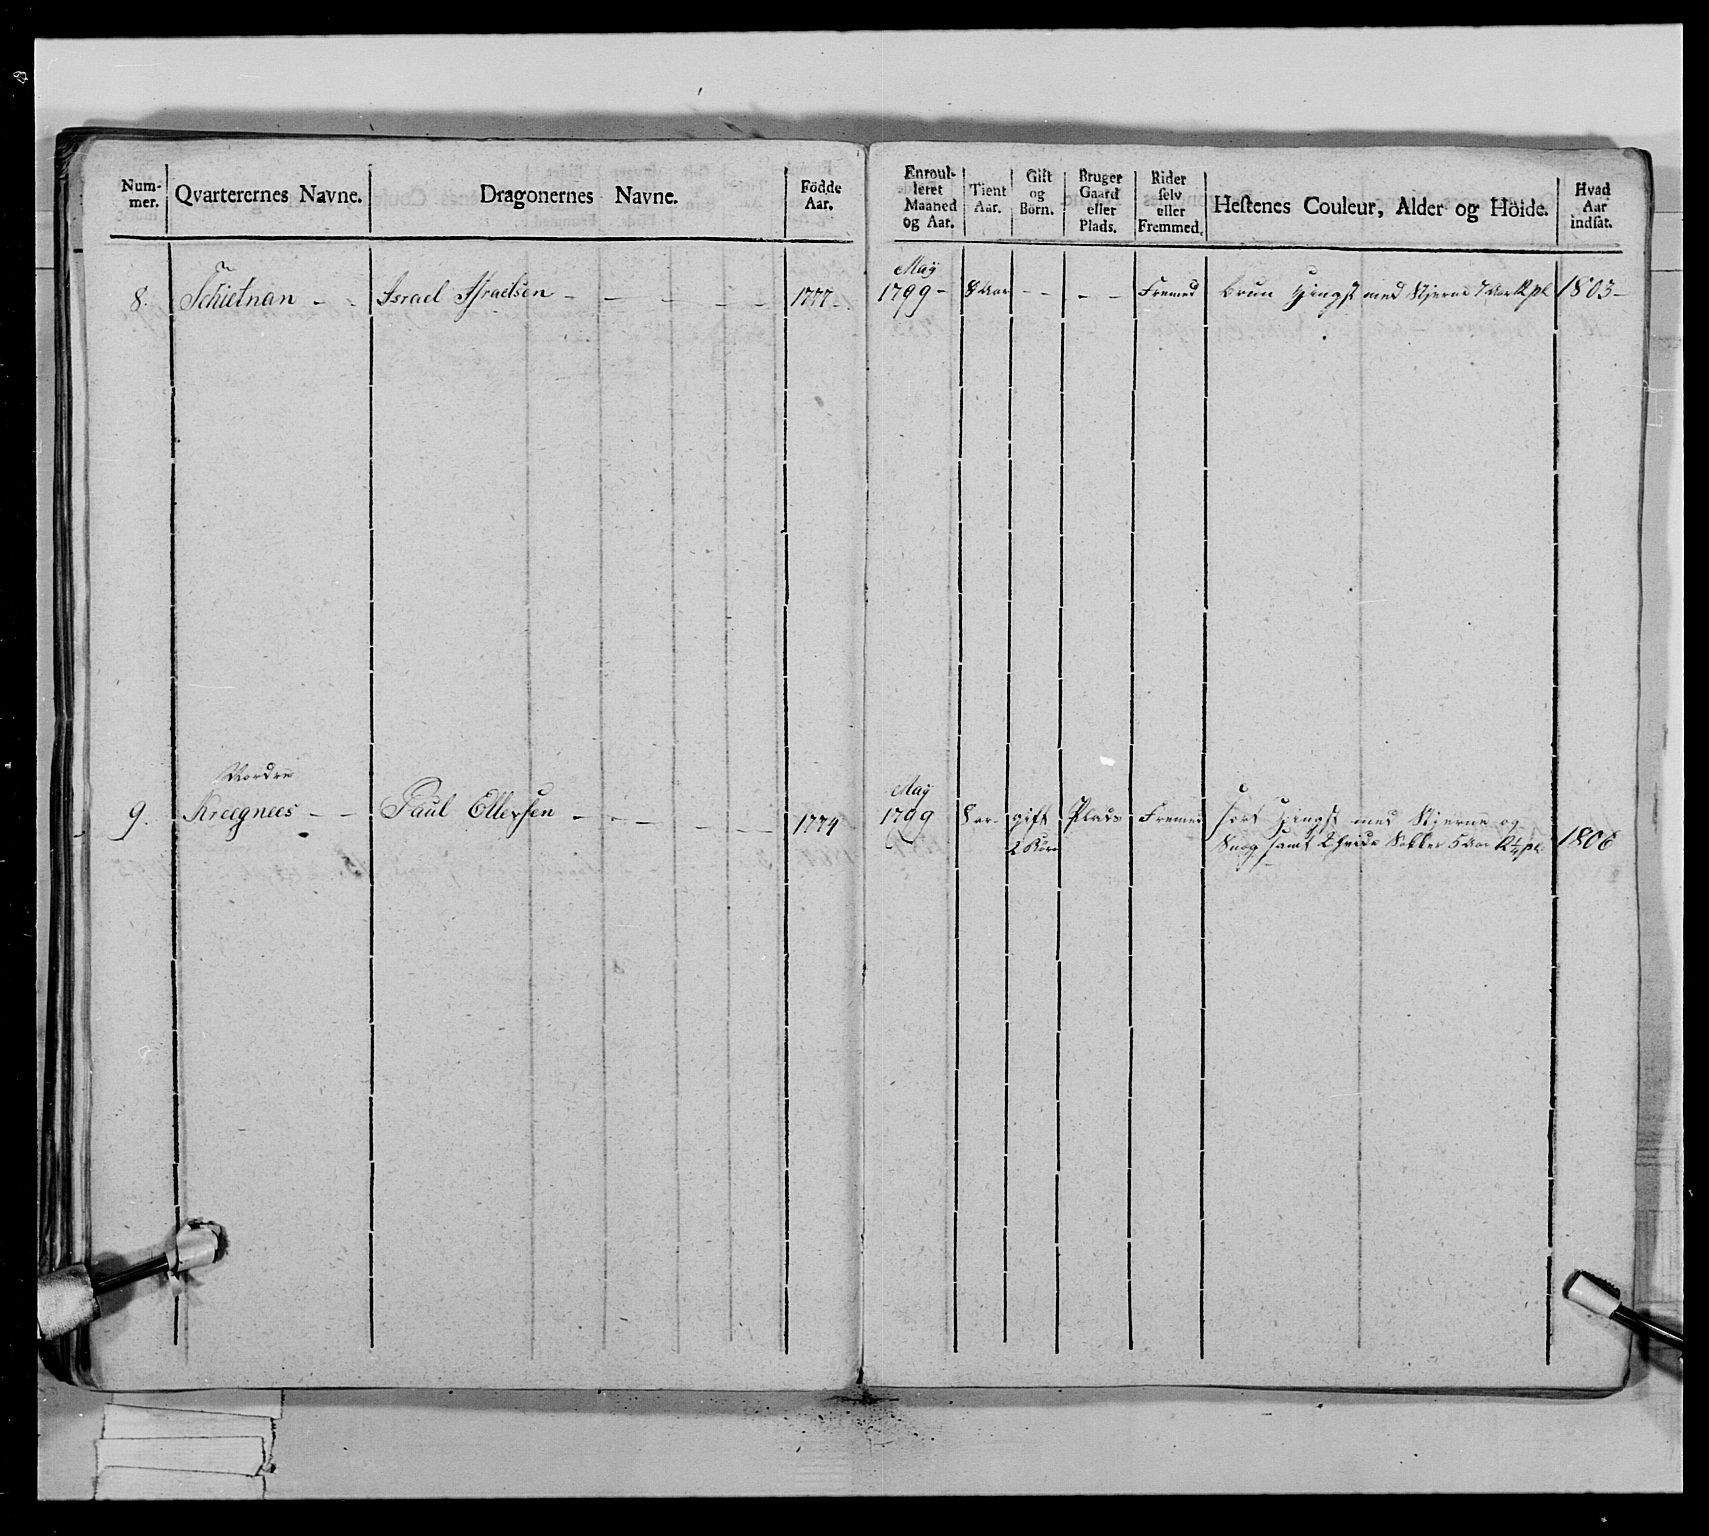 Num-
mer.
Qvarterernes Navne.
Dragonernes Navne.
Födde
Aar.
Enroul-
leret
Maaned
og Aar.
Tient
Aar.
Gift
og
Börn.
Bruger
Gaard
eller
Plads.
Rider
selv
eller
Fremmed.
Hestenes Couleur, Alder og Höide.
Hvad
Aar
indsat.
May
8. Schietnan - - Israel Israelsen - - - - - 1777 - 1799 - 8 Aar - - - - Fremed brun Hingst med Stjerne 7 Aar 1803 -
Nordre May
9. Kreegnees - - Paul Ellevsen - - - - - 1774 1799 8 ar gift Plads Fremed sort Hingst med Stjerne og
2 Börn Snog samt 2 hvide Sokker 5 Aar 1806